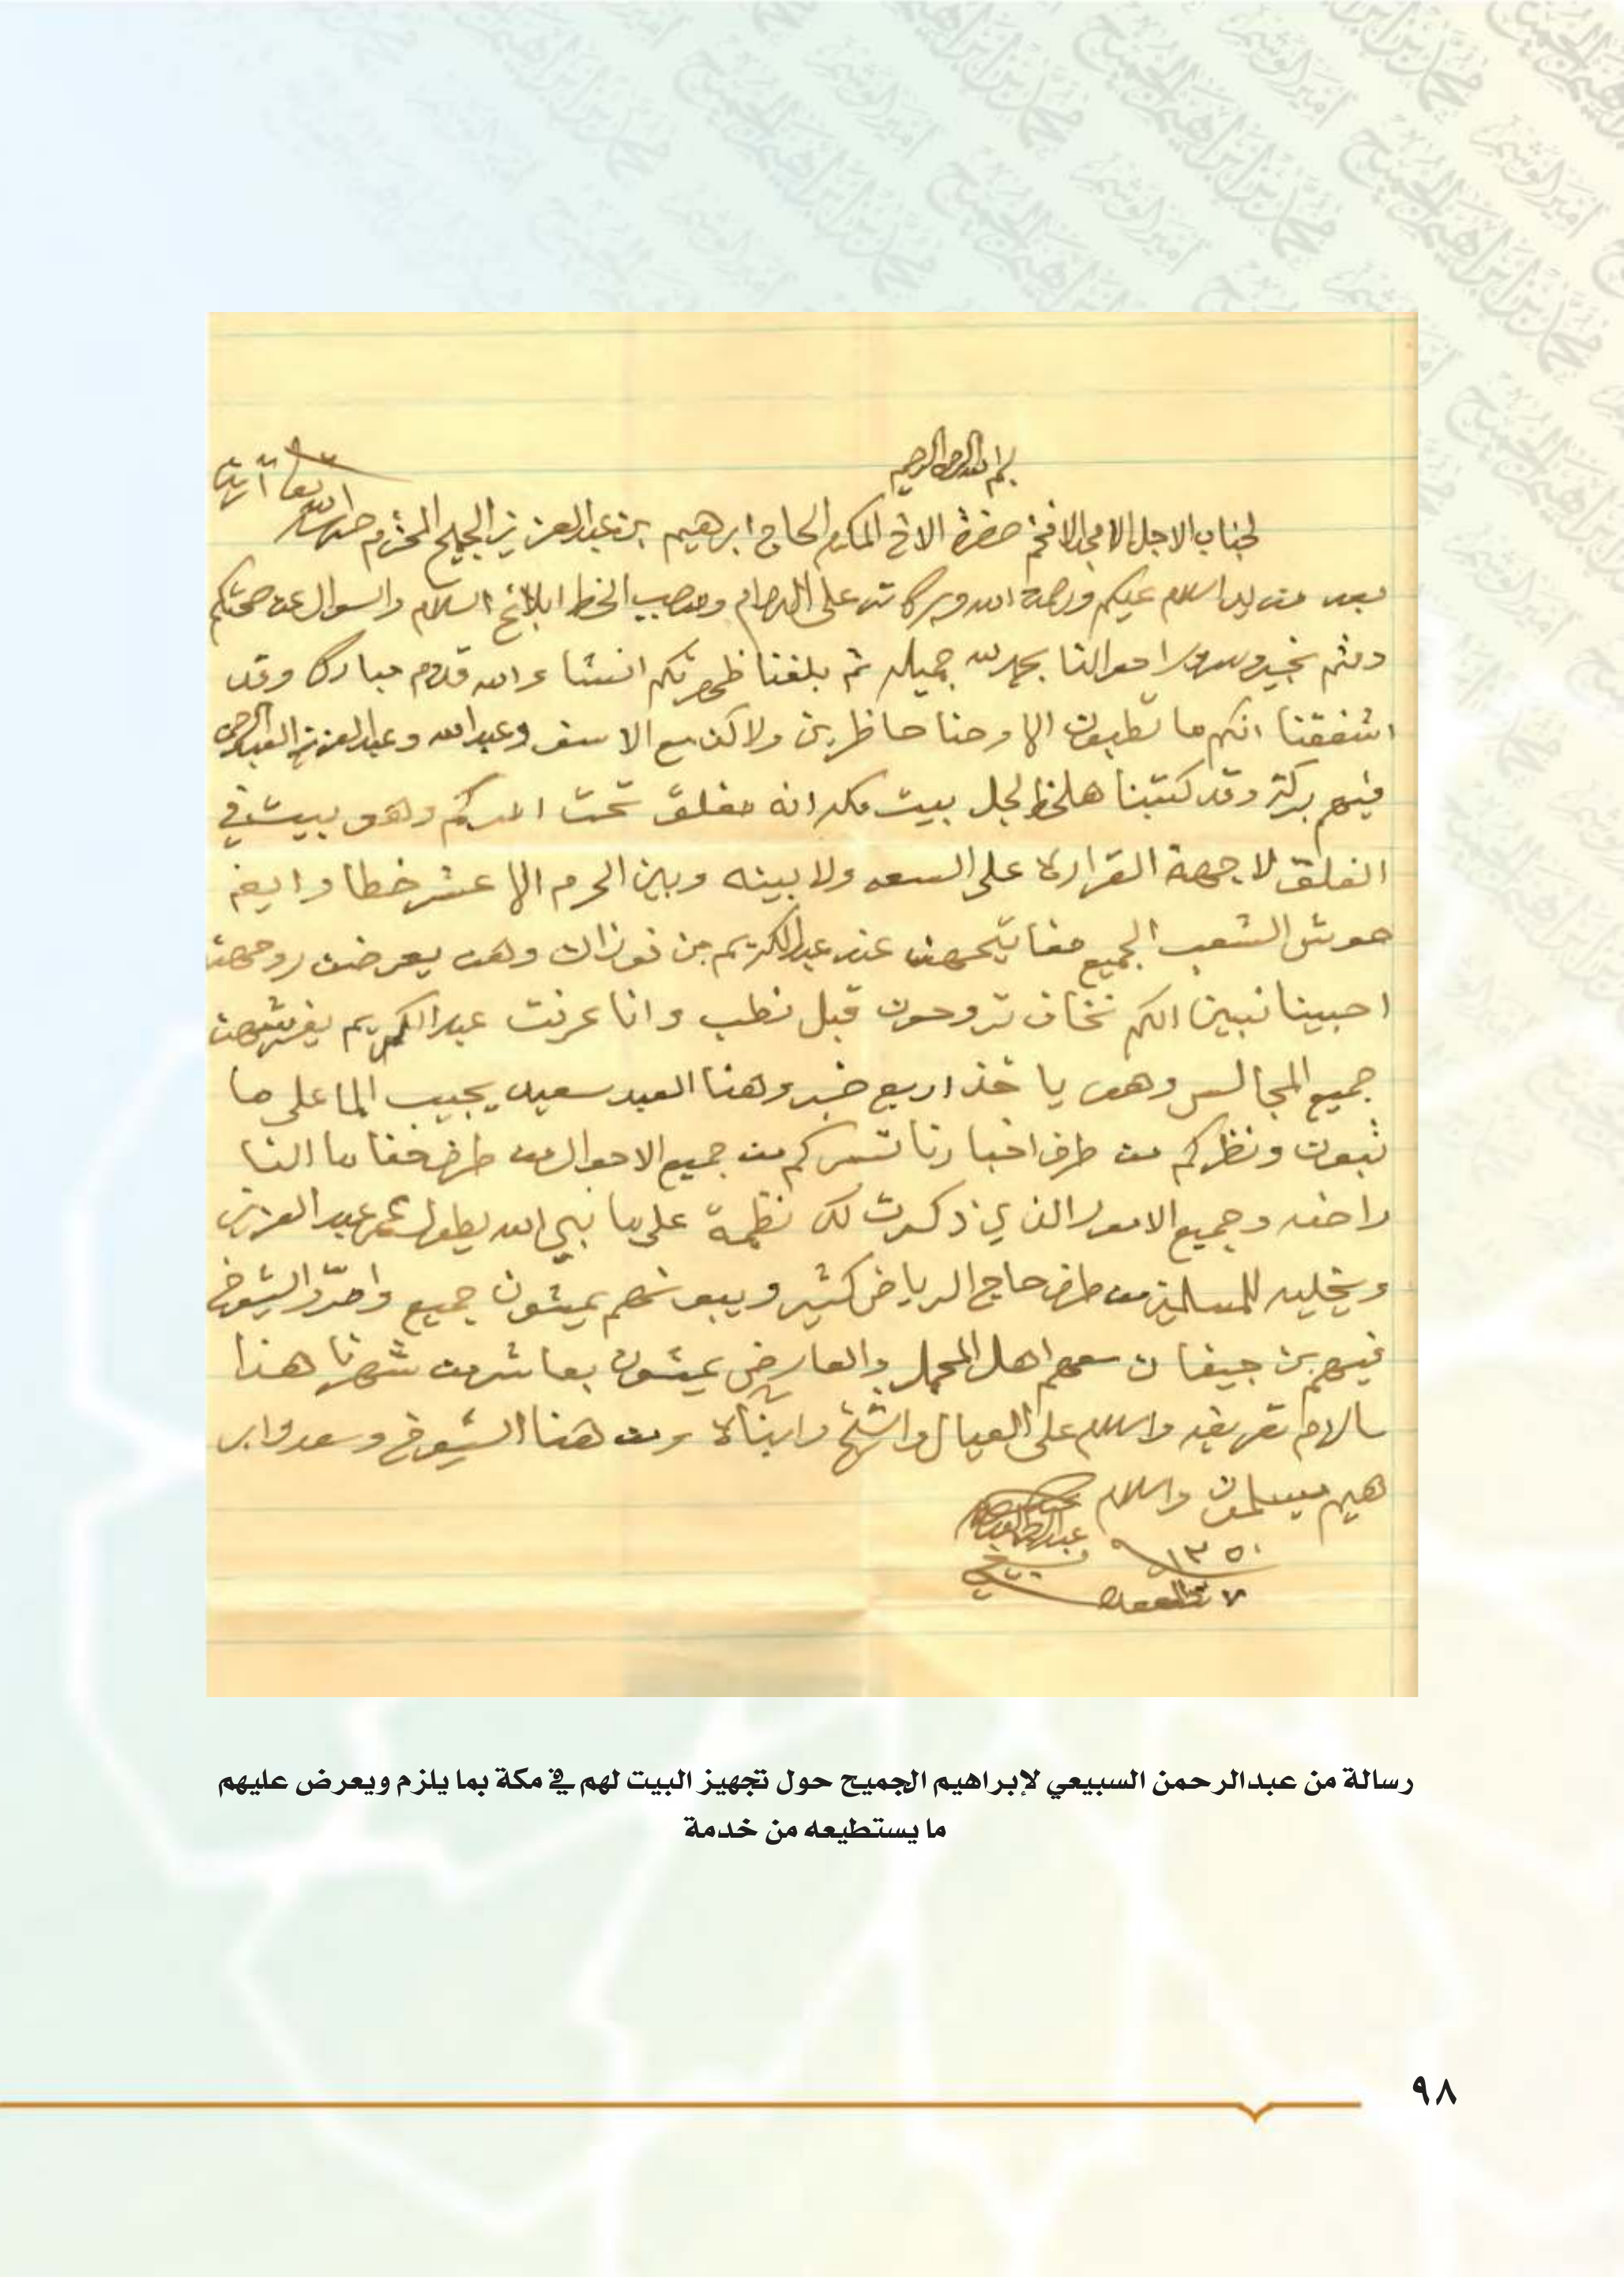 بسم الله الرحمن الرحيم
لجناب الاجل الامجد الافخم حضرة الاخ المكرم الحاج ابرهيم بن عبدالعزيز الجميح المحترم الله تعا آمين
بعد السلام عليكم ورحمة الله وبركاته على الدوام وموجب الخط ابلاغ السلام والسوال عن صحتكم
دمتم بخير وسرور احوالنا بحمد لله جميله ثم بلغنا ظهرتكم انشاء الله قدوم مبارك وقد
اشفقنا انكم ما تطبون الا وحنا حاظرين ولاكن مع الاسف وعبدالله وعبدالعزيز العبدالرحمن
فيهم بركة وقد كتبنا هلخط لجل بيت مكه انه مغلق تحت امركم وهو بيت في
الفلق لا جهة القراره على السعه ولا بينه وبين الحرم الا عشر خطا وايض
حوش الشعب الجميع مفاتيحهن عند عبدالكريم بن فوزان وهو يعرضن روحهن
احبينا نبين لكم نخاف تروحون قبل نطب وانا عرفت عبدالكريم يفرشهن
جميع المجالس وهو ياخذ اربع وهنا العبد سعيد يجيب الما على ما
تبون ونظركم من طرف اخبارنا تسركم من جميع الاحوال من طرف
وجميع الامور الذي ذكرت لك على ما نبي الله يطول عمر عبدالعزيز
ويخليه للمسلمين من طرف حاج الرياض كثير ويبونهم يمشون جميع والشيوخ
فيهم بن جيفان معهم اهل المحمل والعارض يمشون بعاشر من شهرنا هذا
مالزم تعريفه والسلام على العيال والشيخ وابناه ومن هنا الشيوخ وسعد وابر
هيم يسلمون والسلام
١٣٥٠
٧ القعده
رسالة من عبدالرحمن السبيعي لإبراهيم الجميح حول تجهيز البيت لهم في مكة بما يلزم ويعرض عليهم
ما يستطيعه من خدمة
٩٨